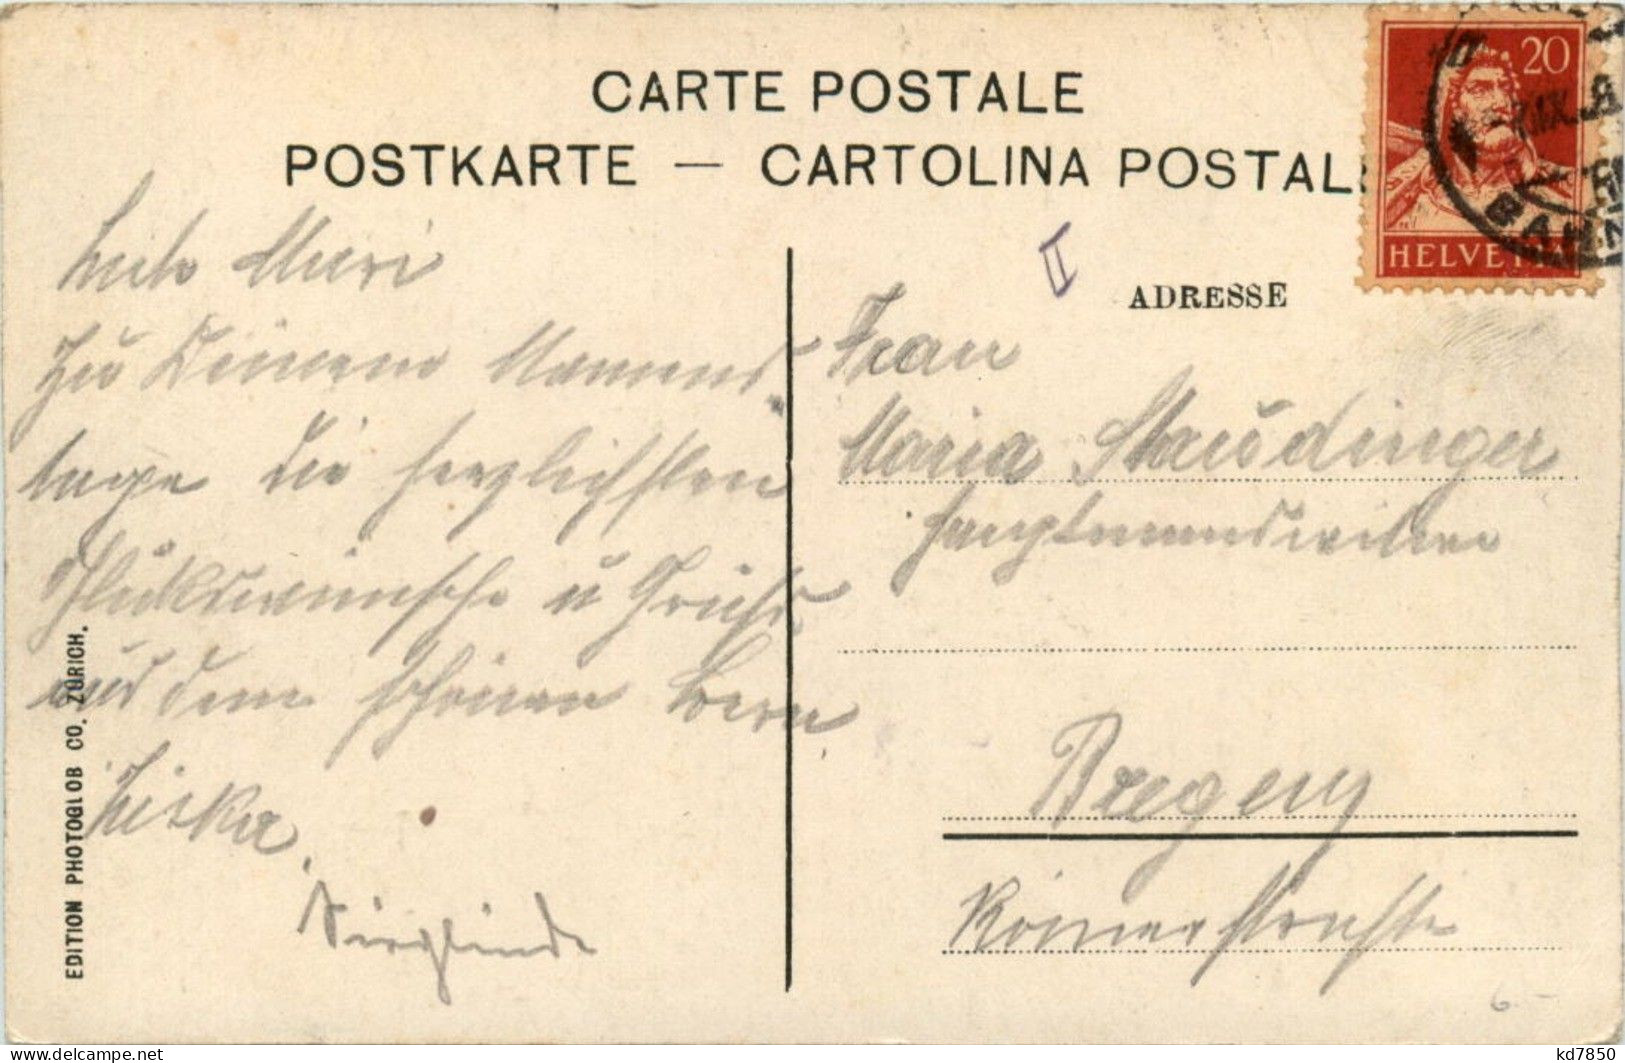 CARTE POSTALE
POSTKARTE — CARTOLINA POSTAL
20
HELVETIA
BAHN
II
ADRESSE
Liebe Mari
Zu Deinem Namens-
tage die herzlichsten
Glückswünsche u Grüße
aus dem schönen Bern
Liska.
Sieglinde
Frau
Maria Staudinger
Hauptmannswitwe
Bregenz
Römerstraße
6.-
EDITION PHOTOGLOB CO. ZÜRICH.
www.delcampe.net
kd7850